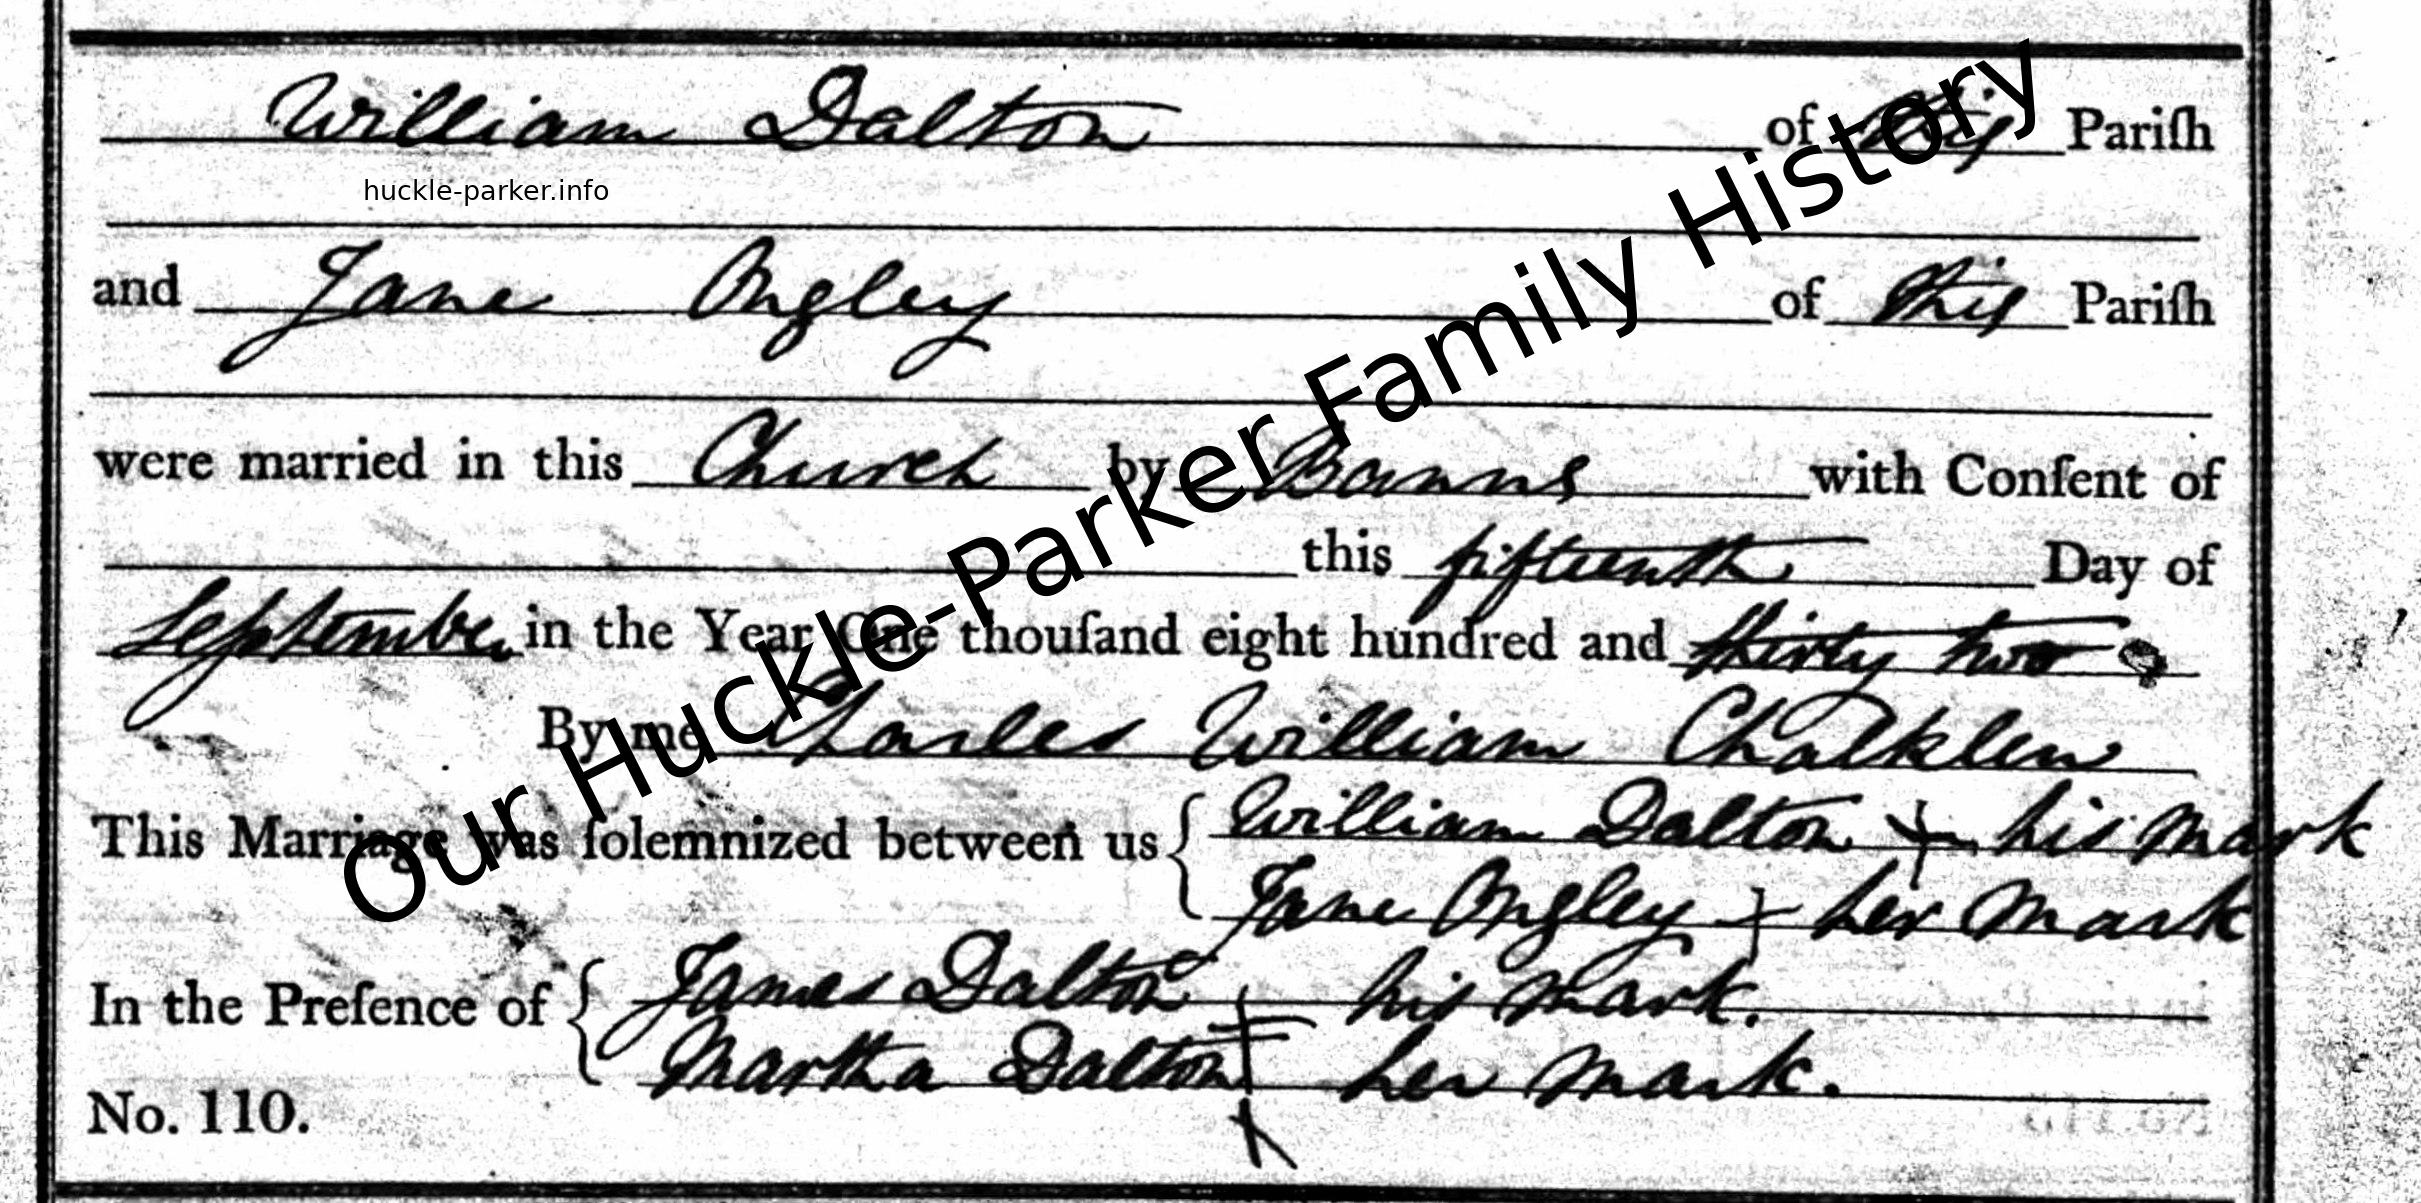 William Dalton of this Pariſh
huckle-parker.info
and Jane Ongley of this Pariſh
were married in this Church by Banns with Conſent of
this fifteenth Day of
September in the Year One thouſand eight hundred and thirty two
By me Charles William Chalklen
This Marriage was ſolemnized between us { William Dalton + his mark
Jane Ongley + her mark
In the Preſence of { James Dalton + his mark.
Martha Dalton + her mark.
No. 110.
Our Huckle-Parker Family History